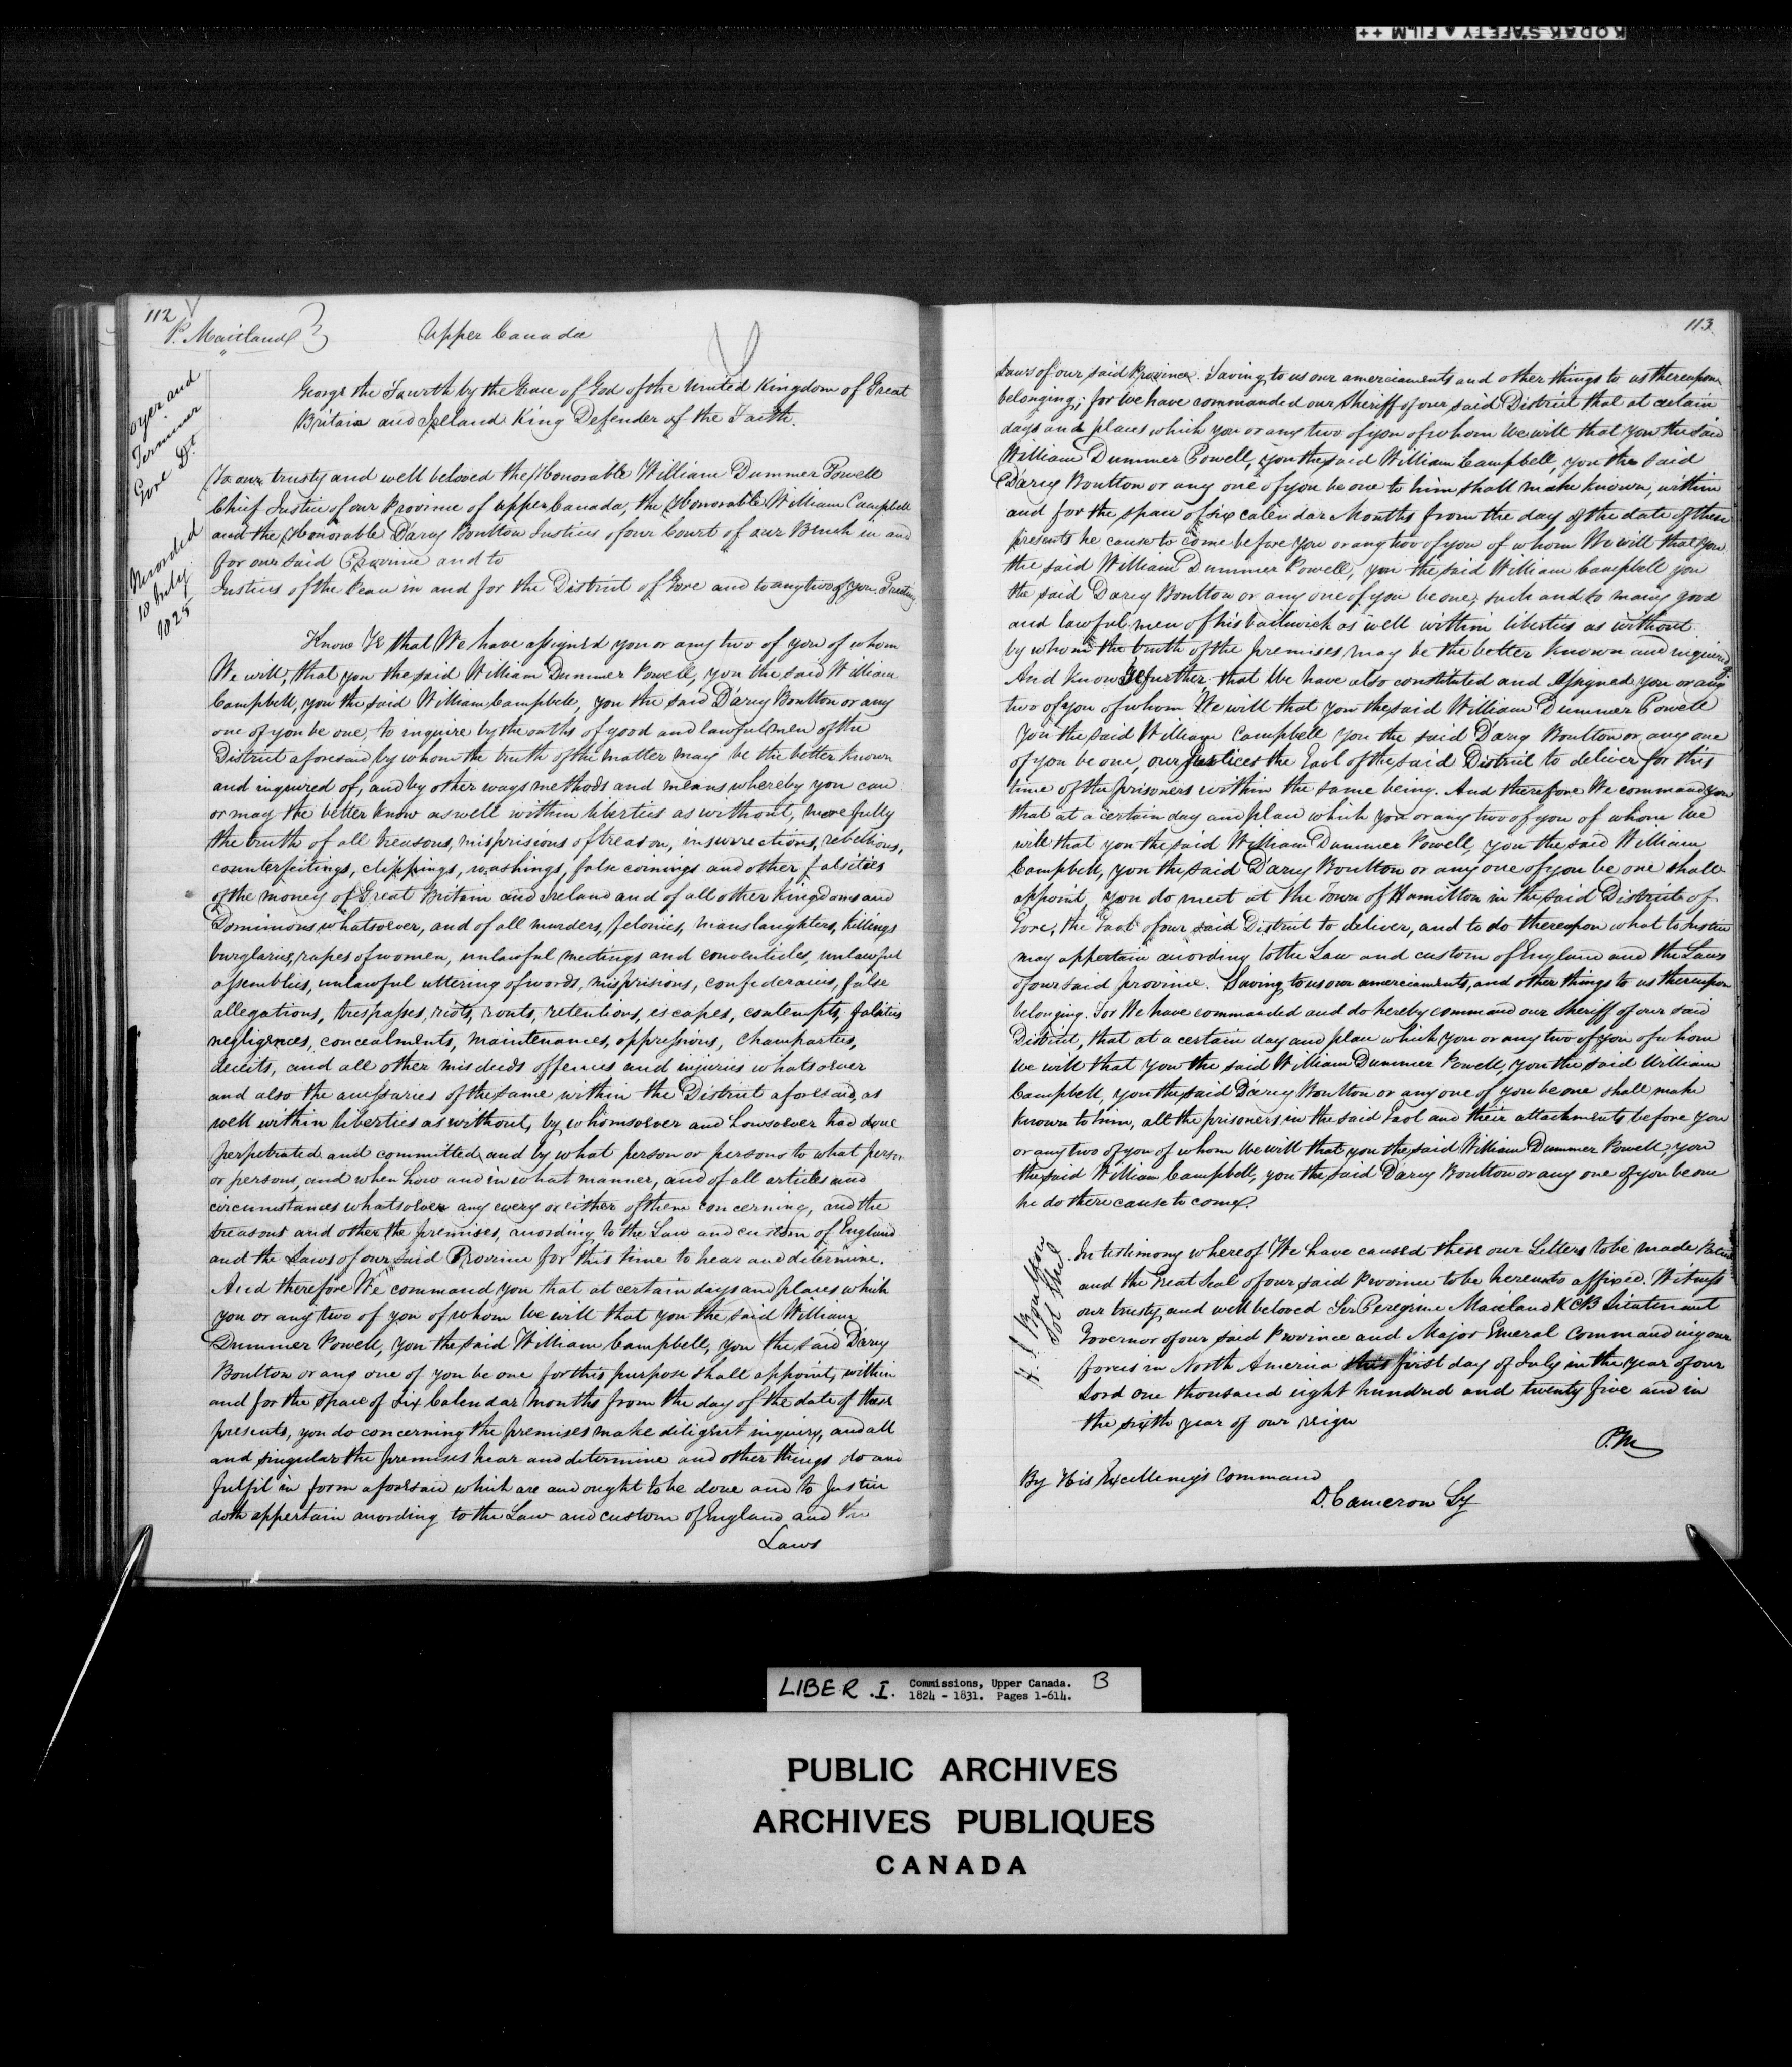 KODAK SAFETY FILM ++
112
P. Maitland
Upper Canada
Oyer and
Terminer
Gore Dt.
Recorded
10 July
1825
George the Fourth by the Grace of God of the United Kingdom of Great
Britain and Ireland King Defender of the Faith.
To our trusty and well beloved the Honorable William Dummer Powell
Chief Justice of our Province of Upper Canada, the Honorable William Campbell
and the Honorable D'arcy Boulton Justices of our Court of our Bench in and
for our said Province and to
Justices of the Peace in and for the District of Gore and to any two of you Greeting
Know Ye that We have assigned you or any two of you of whom
We will, that you the said William Dummer Powell, you the said William
Campbell, you the said William Campbell, you the said D'arcy Boulton or any
one of you be one, to inquire by the oaths of good and lawful men of the
District aforesaid by whom the truth of the matter may be the better known
and inquired of, and by other ways methods and means whereby you can
or may the better know as well within liberties as without, more fully
the truth of all treasons, misprisions of treason, insurrections, rebellions,
counterfeitings, clippings, washings, false coinings and other falsities
of the money of Great Britain and Ireland and of all other Kingdoms and
Dominions whatsoever, and of all murders, felonies, manslaughters, killings
burglaries, rapes of women, unlawful meetings and conventicles, unlawful
assemblies, unlawful uttering of words, misprisions, confederacies, false
allegations, trespasses, riots, routs, retentions, escapes, contempts, falsities
negligences, concealments, maintenances, oppressions, champarties,
deceits, and all other misdeeds offences and injuries whatsoever
and also the accessaries of the same within the District aforesaid, as
well within liberties as without, by whomsoever and howsoever had done
perpetrated and committed and by what person or persons to what person
or persons, and when how and in what manner, and of all articles and
circumstances whatsoever any every or either of them concerning, and the
treasons and other the premises, according to the Law and custom of England
and the Laws of our said Province for this time to hear and determine.
And therefore We command you that at certain days and places which
you or any two of you of whom We will that you the said William
Dummer Powell, you the said William Campbell, you the said D'arcy
Boulton or any one of you be one for this purpose shall appoint, within
and for the space of six Calendar months from the day of the date of these
presents, you do concerning the premises make diligent inquiry, and all
and singular the premises hear and determine and other things do and
fulfil in form aforesaid which are and ought to be done and to Justice
doth appertain according to the Law and custom of England and the
Laws
113
Laws of our said Province. Saving to us our amerciaments and other things to us thereupon
belonging; for we have commanded our Sheriff of our said District that at certain
days and places which you or any two of you of whom We will that you the said
William Dummer Powell, you the said William Campbell, you the said
D'arcy Boulton or any one of you be one to him shall make known, within
and for the space of six calendar Months from the day of the date of these
presents he cause to come before you or any two of you of whom We will that you
the said William Dummer Powell, you the said William Campbell you
the said Darcy Boulton or any one of you be one; such and so many good
and lawful men of his bailiwick as well within liberties as without
by whom the truth of the premises may be the better known and inquired of.
And Know Ye further that We have also constituted and assigned you or any
two of you of whom We will that you the said William Dummer Powell
you the said William Campbell you the said D'arcy Boulton or any one
of you be one, our Justices the Gaol of the said District to deliver for this
time of the prisoners within the same being. And therefore We command you
that at a certain day and place which you or any two of you of whom we
will that you the said William Dummer Powell, you the said William
Campbell, you the said D'arcy Boulton or any one of you be one shall
appoint, you do meet at the Town of Hamilton in the said District of
Gore, the Gaol of our said District to deliver, and to do thereupon what to Justice
may appertain according to the Law and custom of England and the Laws
of our said province. Saving to us our amerciaments, and other things to us thereupon
belonging. For We have commanded and do hereby command our Sheriff of our said
District, that at a certain day and place which you or any two of you of whom
We will that you the said William Dummer Powell, you the said William
Campbell, you the said D'arcy Boulton or any one of you be one shall make
known to him, all the prisoners in the said Gaol and their attachments before you
or any two of you of whom We will that you the said William Dummer Powell, you
the said William Campbell, you the said D'arcy Boulton or any one of you be one
he do there cause to come.
In testimony whereof We have caused these our Letters to be made Patent
and the Great Seal of our said Province to be hereunto affixed. Witness
our trusty and well beloved Sir Peregrine Maitland KCB Lieutenant
Governor of our said Province and Major General Commanding our
forces in North America this first day of July in the year of our
Lord one thousand eight hundred and twenty five and in
the sixth year of our reign
P.M
By His Excellency's Command
D. Cameron Sy
LIBER .I. Commissions, Upper Canada. B
1824 - 1831. Pages 1-614.
PUBLIC ARCHIVES
ARCHIVES PUBLIQUES
CANADA